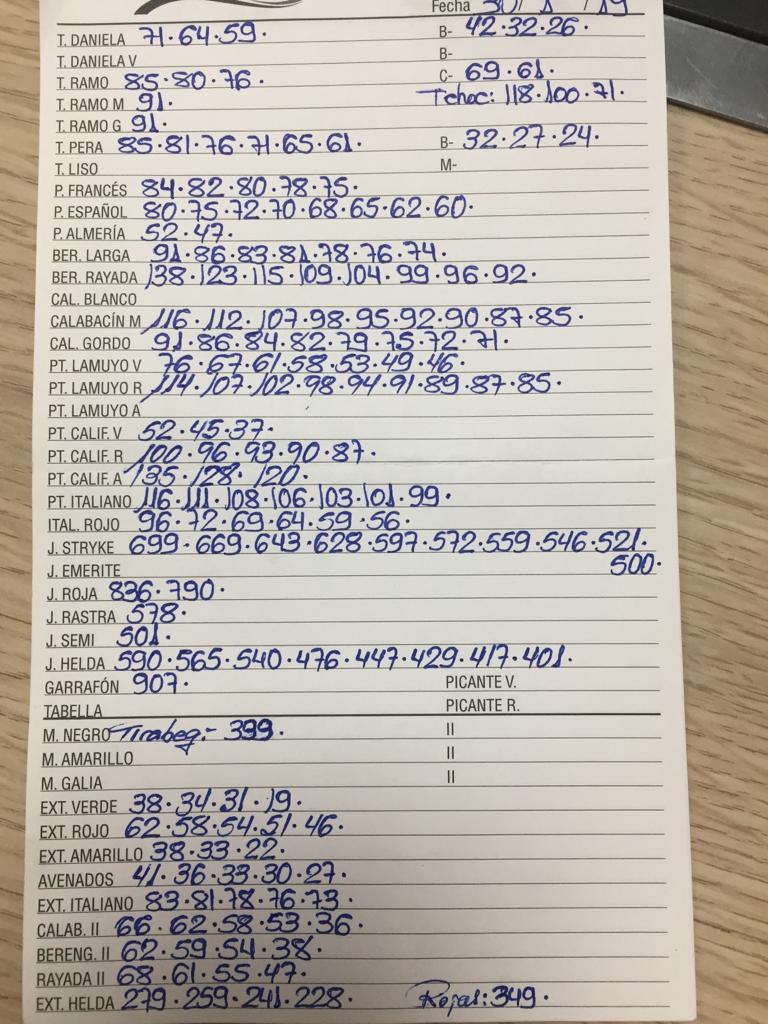 Fecha 30/ 1 /19
T. DANIELA 71·64·59· B- 42·32·26·
T. DANIELA V B-
T. RAMO 85·80·76· C- 69·61·
T. RAMO M 91· Tchoc: 118·100·71·
T. RAMO G 91·
T. PERA 85·81·76·71·65·61· B- 32·27·24·
T. LISO M-
P. FRANCÉS 84·82·80·78·75·
P. ESPAÑOL 80·75·72·70·68·65·62·60·
P. ALMERÍA 52·47·
BER. LARGA 91·86·83·81·78·76·74·
BER. RAYADA 138·123·115·109·104·99·96·92·
CAL. BLANCO
CALABACÍN M 116·112·107·98·95·92·90·87·85·
CAL. GORDO 91·86·84·82·79·75·72·71·
PT. LAMUYO V 76·67·61·58·53·49·46·
PT. LAMUYO R 114·107·102·98·94·91·89·87·85·
PT. LAMUYO A
PT. CALIF. V 52·45·37·
PT. CALIF. R 100·96·93·90·87·
PT. CALIF. A 135·128·120·
PT. ITALIANO 116·111·108·106·103·101·99·
ITAL. ROJO 96·72·69·64·59·56·
J. STRYKE 699·669·643·628·597·572·559·546·521·
J. EMERITE 500·
J. ROJA 836·790·
J. RASTRA 578·
J. SEMI 501·
J. HELDA 590·565·540·476·447·429·417·401·
GARRAFÓN 907· PICANTE V.
TABELLA PICANTE R.
M. NEGRO Tirabeq:- 399· II
M. AMARILLO II
M. GALIA II
EXT. VERDE 38·34·31·19·
EXT. ROJO 62·58·54·51·46·
EXT. AMARILLO 38·33·22·
AVENADOS 41·36·33·30·27·
EXT. ITALIANO 83·81·78·76·73·
CALAB. II 66·62·58·53·36·
BERENG. II 62·59·54·38·
RAYADA II 68·61·55·47·
EXT. HELDA 279·259·241·228· Rojas: 349·